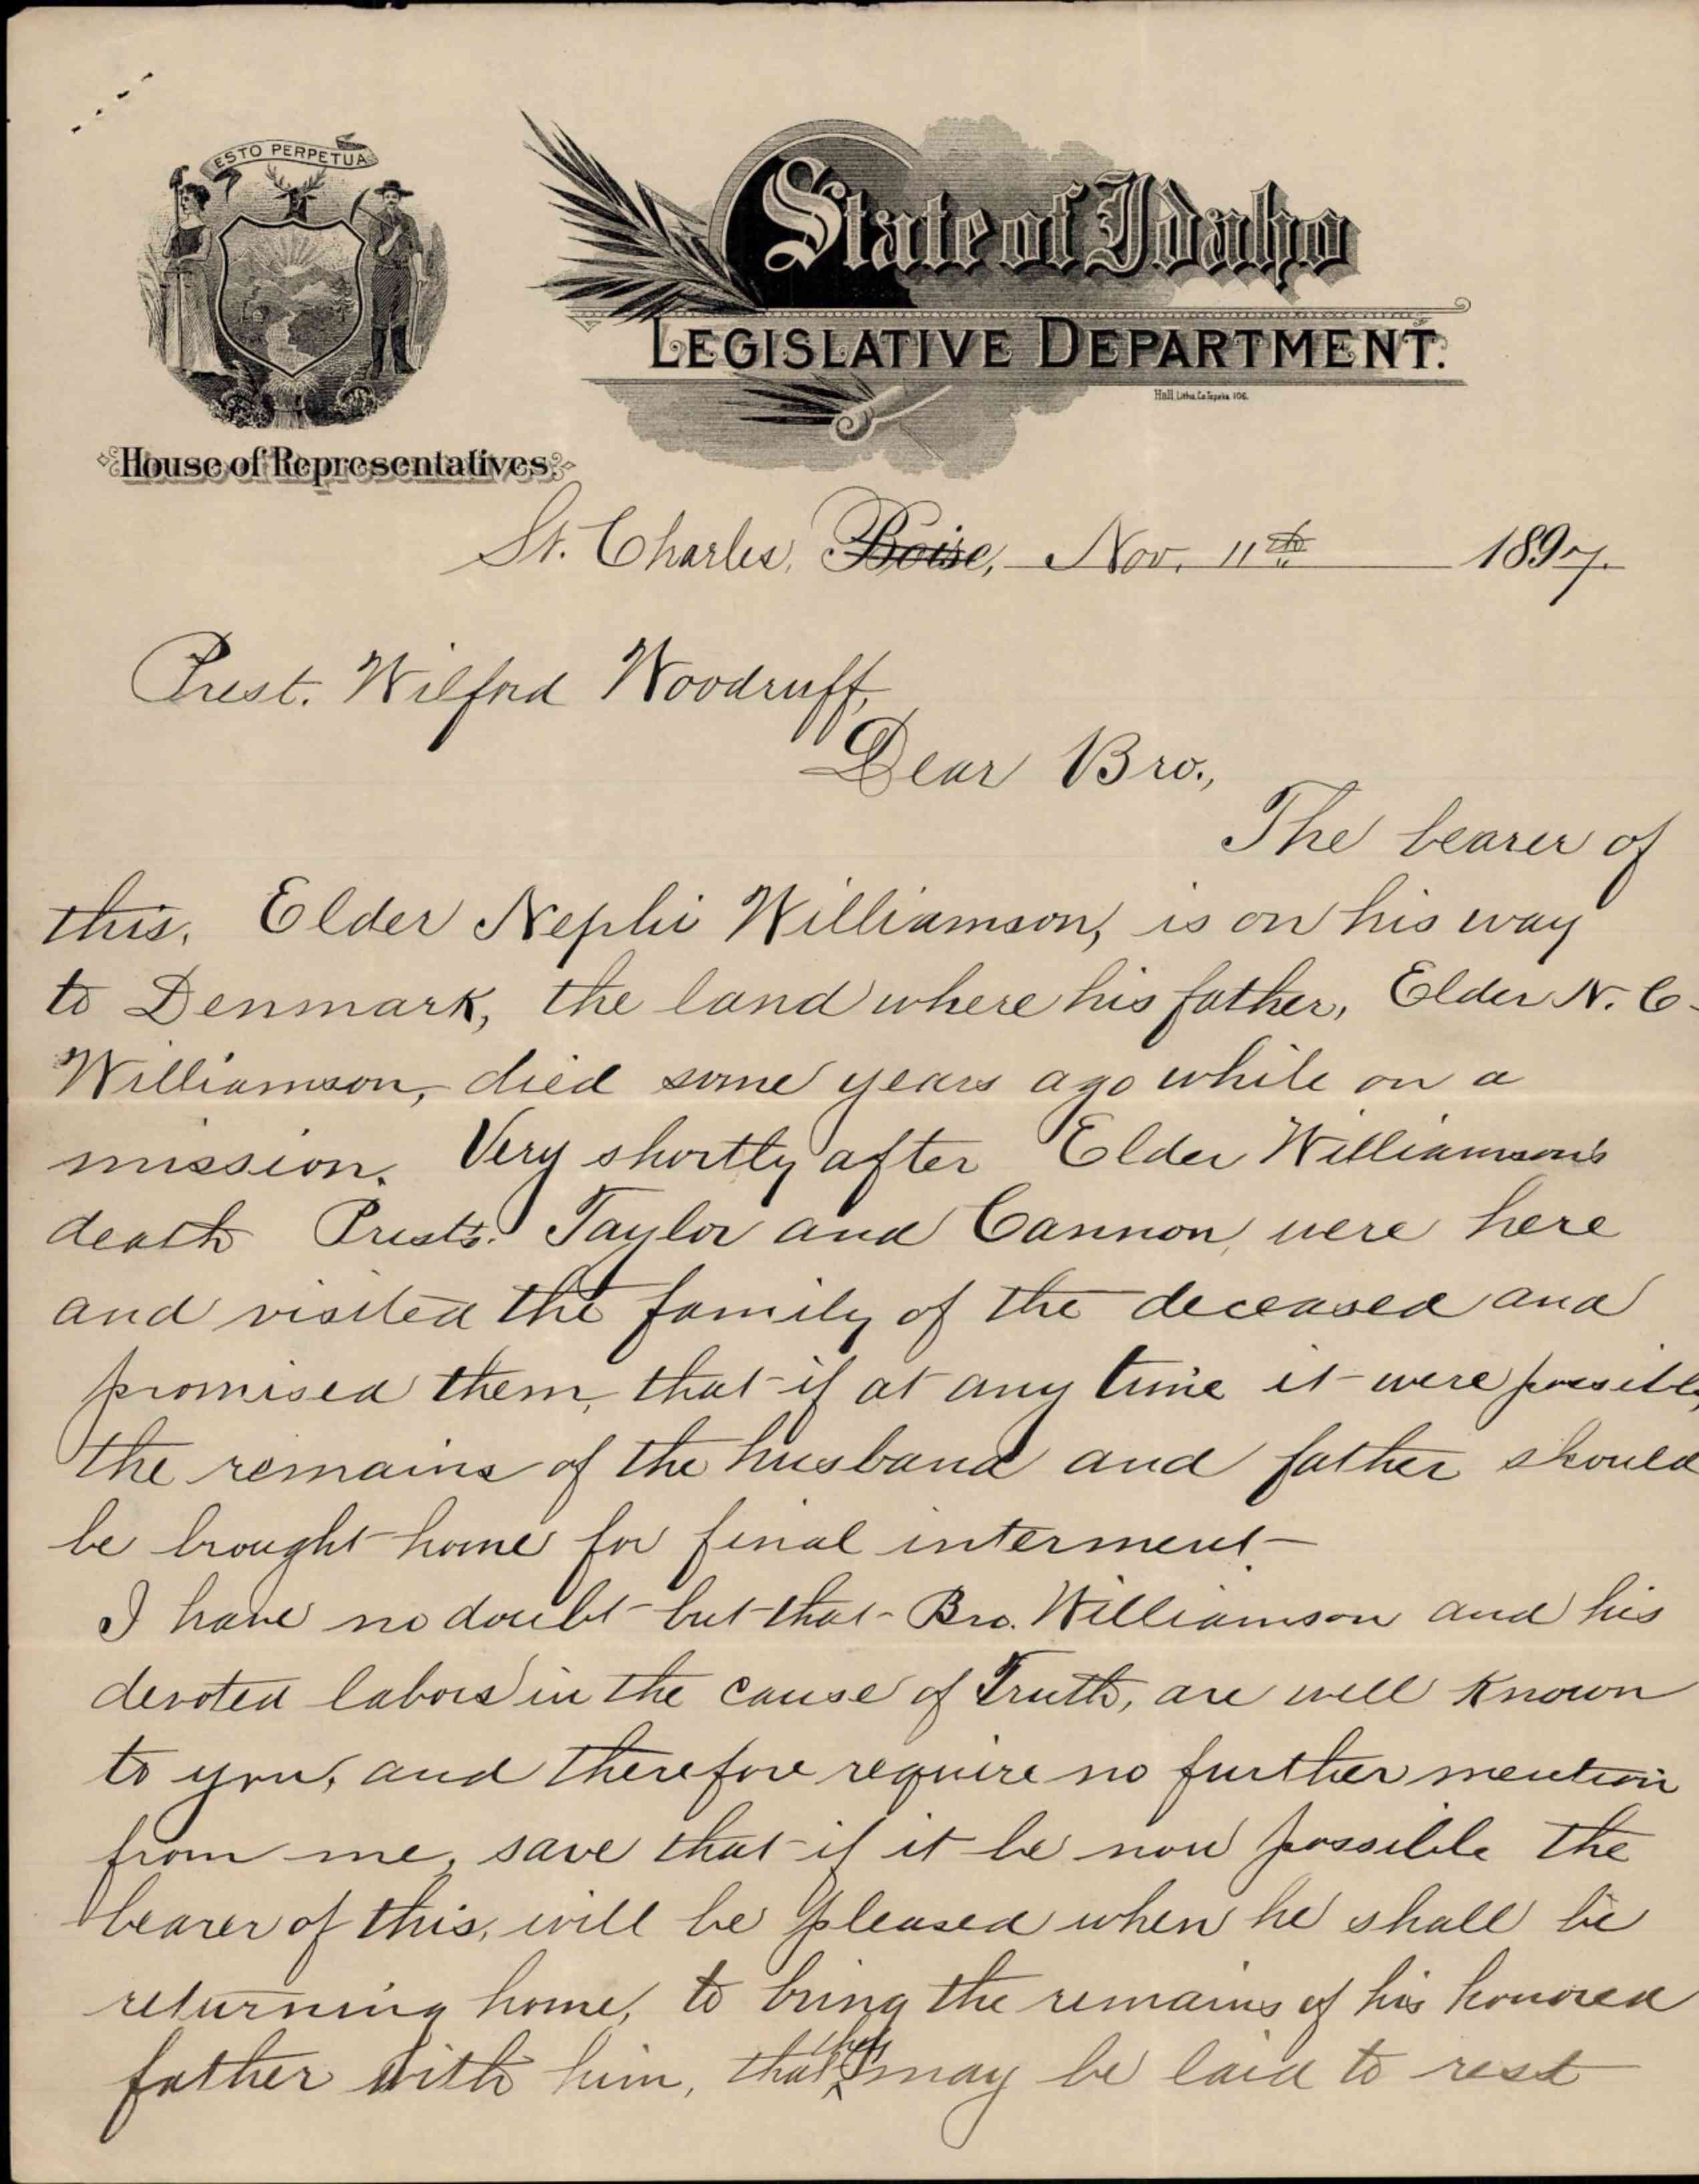 ESTO PERPETUA
State of Idaho
LEGISLATIVE DEPARTMENT.
Hall Litho. Co. Topeka.
House of Representatives.
St. Charles, Boise, Nov. 11th 1897.
Prest. Wilford Woodruff,
Dear Bro.,
The bearer of
this, Elder Nephi Williamson, is on his way
to Denmark, the land where his father, Elder N. C.
Williamson, died some years ago while on a
mission. Very shortly after Elder Williamson's
death Prests. Taylor and Cannon, were here
and visited the family of the deceased and
promised them, that if at any time it were possible,
the remains of the husband and father should
be brought home for final interment.
I have no doubt but that Bro. Williamson and his
devoted labors in the cause of Truth, are well known
to you, and therefore require no further mention
from me, save that if it be now possible the
bearer of this, will be pleased when he shall be
returning home, to bring the remains of his honored
father with him, that they may be laid to rest